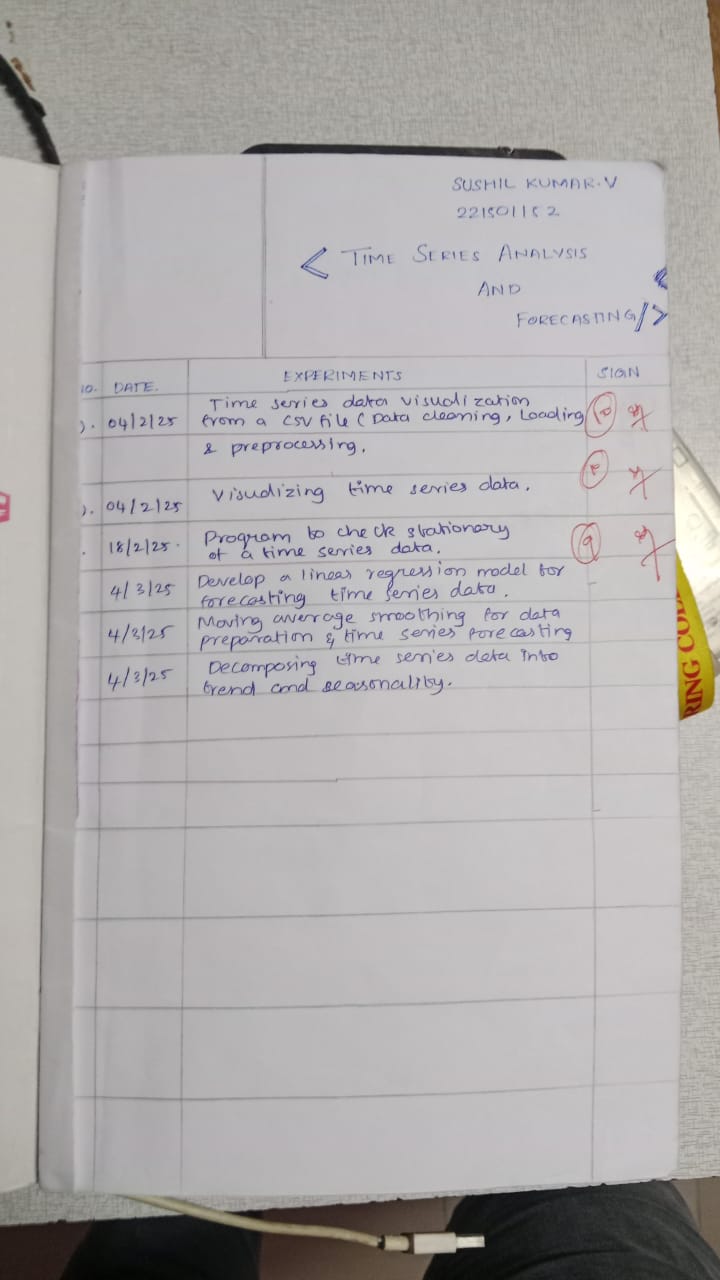 SUSHIL KUMAR.V
< TIME SERIES ANALYSIS
AND
FORECASTING/>
NO. DATE. EXPERIMENTS SIGN
Time series data visualization
04/2/25 from a CSV file (Data cleaning, Loading
& preprocessing.
04/2/25 Visualizing time series data.
18/2/25. Program to check stationary
of a time series data.
4/3/25 Develop a linear regression model for
forecasting time series data.
4/3/25 Moving average smoothing for data
preparation & time series forecasting
4/3/25 Decomposing time series data into
trend and seasonality.
RING COL